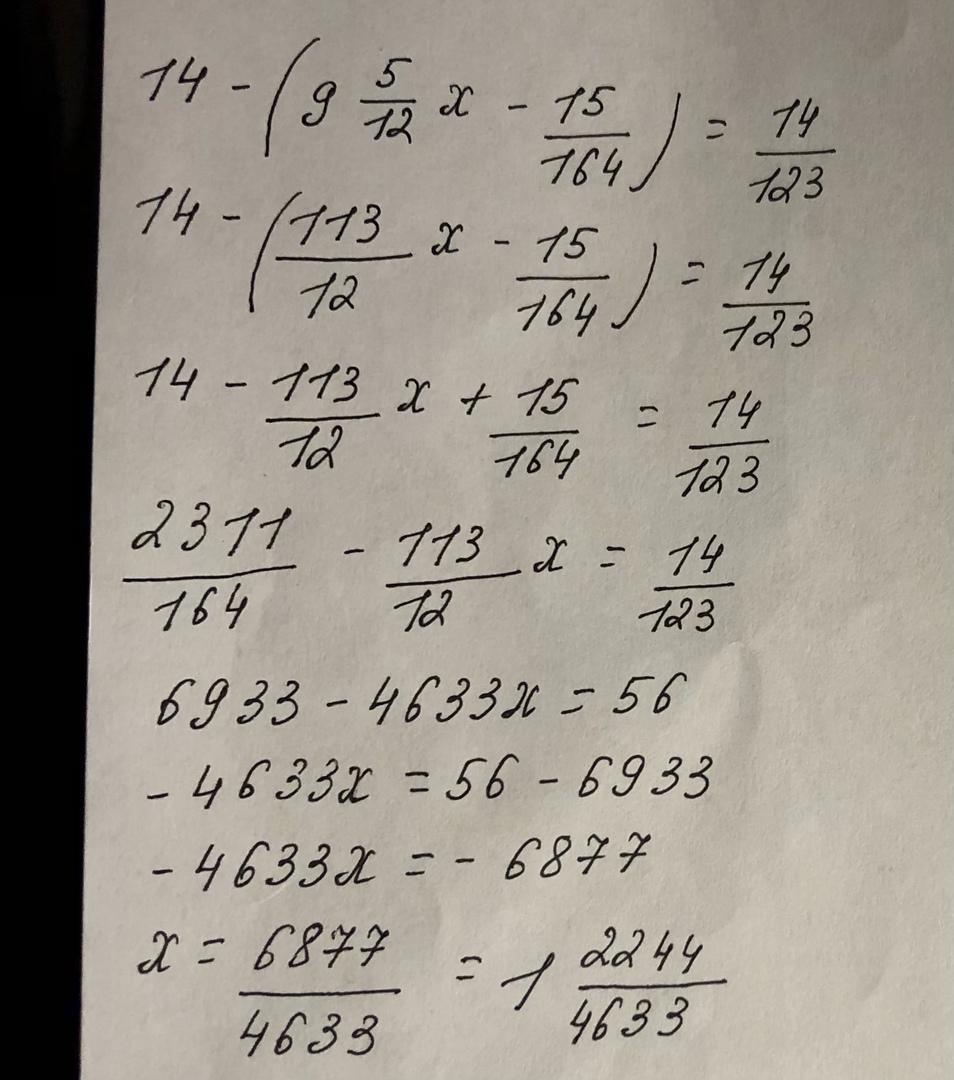 14 - (9 5/12 x - 15/164) = 14/123
14 - (113/12 x - 15/164) = 14/123
14 - 113/12 x + 15/164 = 14/123
2311/164 - 113/12 x = 14/123
6933 - 4633x = 56
- 4633x = 56 - 6933
- 4633x = - 6877
x = 6877/4633 = 1 2244/4633